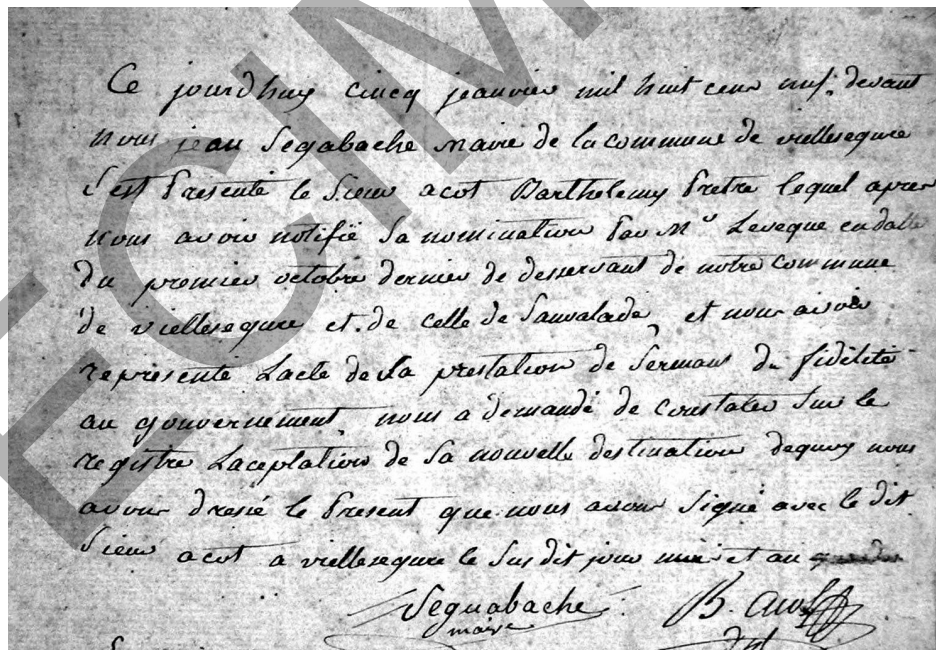 Ce jourdhuy cincq jeanvier mil huit cens nuf. devant
nous jean Segabache maire de la commune de viellesegure
Sest Presenté le Sieur acot Barthelemy Pretre lequel apres
nous avoir notifié Sa nomination Par Mr Leveque en datte
du premier octobre dernier de desservant de notre commune
de viellesegure et de celle de Sauvalade et nous avoir
représenté Lacte de la prestation de Sermant de fidélité
au gouvernement, nous a demandé de constater Sur le
registre Laceptation de Sa nouvelle destination dequoy nous
avons dresié le Present que nous avons Signé avec le dit
Sieur acot a viellesegure le Sus dit jour mois et an
Seguabache B. Acot
maire
ECIM